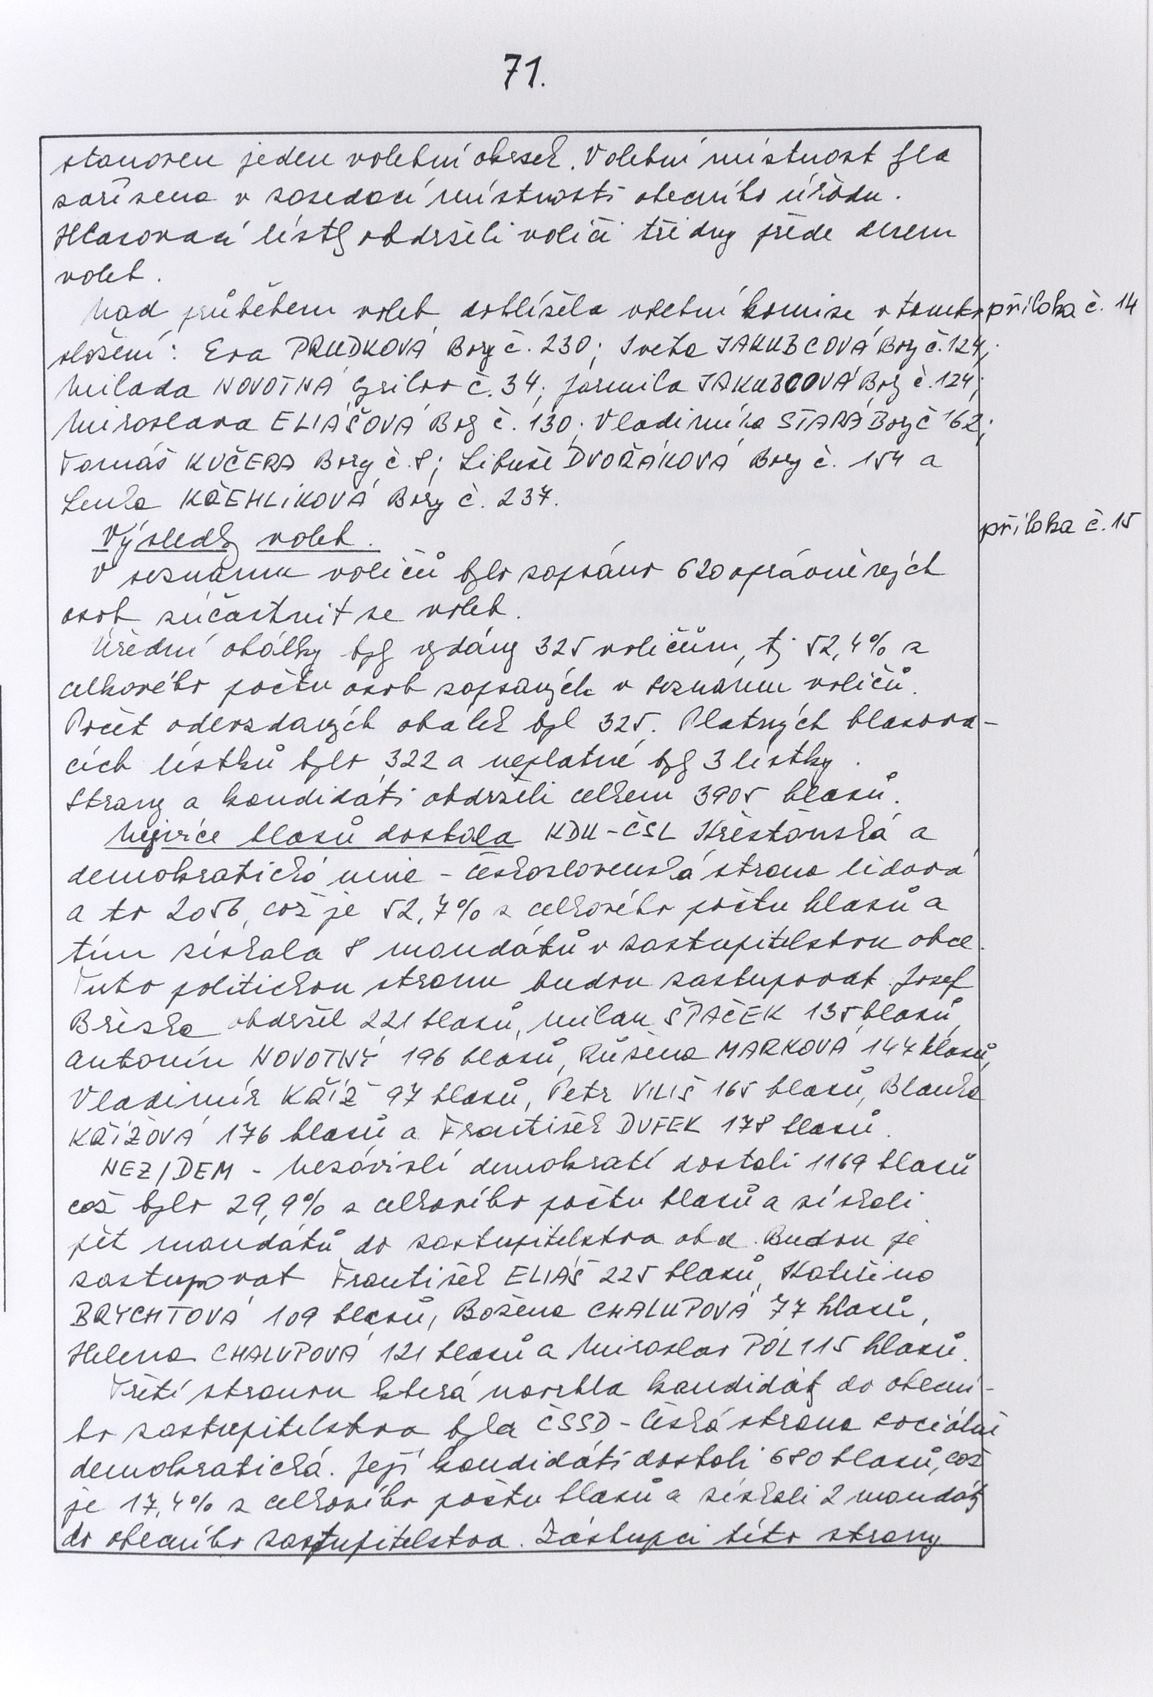 71.
stanoven jeden volební okrsek. Volební místnost byla
zařízena v zasedací místnosti obecního úřadu.
Hlasovací lístky obdrželi voliči tři dny přede dnem
voleb.
Nad průběhem voleb dohlížela volební komise v tomto
příloha č. 14
složení: Eva PRUDKOVÁ Bory č. 230; Iveta JAKUBCOVÁ Bory č. 124;
Milada NOVOTNÁ Cyrilov č. 34; Jarmila JAKUBCOVÁ Bory č. 124;
Miroslava ELIÁŠOVÁ Bory č. 130; Vladimíra STARÁ Bory č 162;
Tomáš KUČERA Bory č. 8; Libuše DVOŘÁKOVÁ Bory č. 154 a
Lenka KŘEHLÍKOVÁ Bory č. 237.
Výsledky voleb.
příloha č. 15
V seznamu voličů bylo zapsáno 620 oprávněných
osob zúčastnit se voleb.
Úřední obálky byly vydány 325 voličům, tj 52,4% z
celkového počtu osob zapsaných v seznamu voličů.
Počet odevzdaných obálek byl 325. Platných hlasova-
cích lístků bylo 322 a neplatné byly 3 lístky.
Strany a kandidáti obdrželi celkem 3905 hlasů.
Nejvíce hlasů dostala KDU-ČSL Křesťanská a
demokratická unie - Československá strana lidová
a to 2056, což je 52,7% z celkového počtu hlasů a
tím získala 8 mandátů v zastupitelstvu obce.
Tuto politickou stranu budou zastupovat Josef
Březka obdržel 221 hlasů, Milan ŠPAČEK 135 hlasů,
Antonín NOVOTNÝ 196 hlasů, Růžena MARKOVÁ 147 hlasů,
Vladimír KŘÍŽ 97 hlasů, Petr VILIŠ 165 hlasů, Blanka
KŘÍŽOVÁ 176 hlasů a František DUFEK 178 hlasů.
NEZ/DEM - Nezávislí demokrati dostali 1169 hlasů
což bylo 29,9% z celkového počtu hlasů a získali
pět mandátů do zastupitelstva obce. Budou je
zastupovat František ELIÁŠ 225 hlasů, Kateřina
BRYCHTOVÁ 109 hlasů, Božena CHALUPOVÁ 77 hlasů,
Helena CHALUPOVÁ 121 hlasů a Miroslav POL 115 hlasů.
Třetí stranou která navrhla kandidáty do obecní-
ho zastupitelstva byla ČSSD - Česká strana sociálně
demokratická. Její kandidáti dostali 680 hlasů, což
je 17,4% z celkového počtu hlasů a získali 2 mandáty
do obecního zastupitelstva. Zástupci této strany